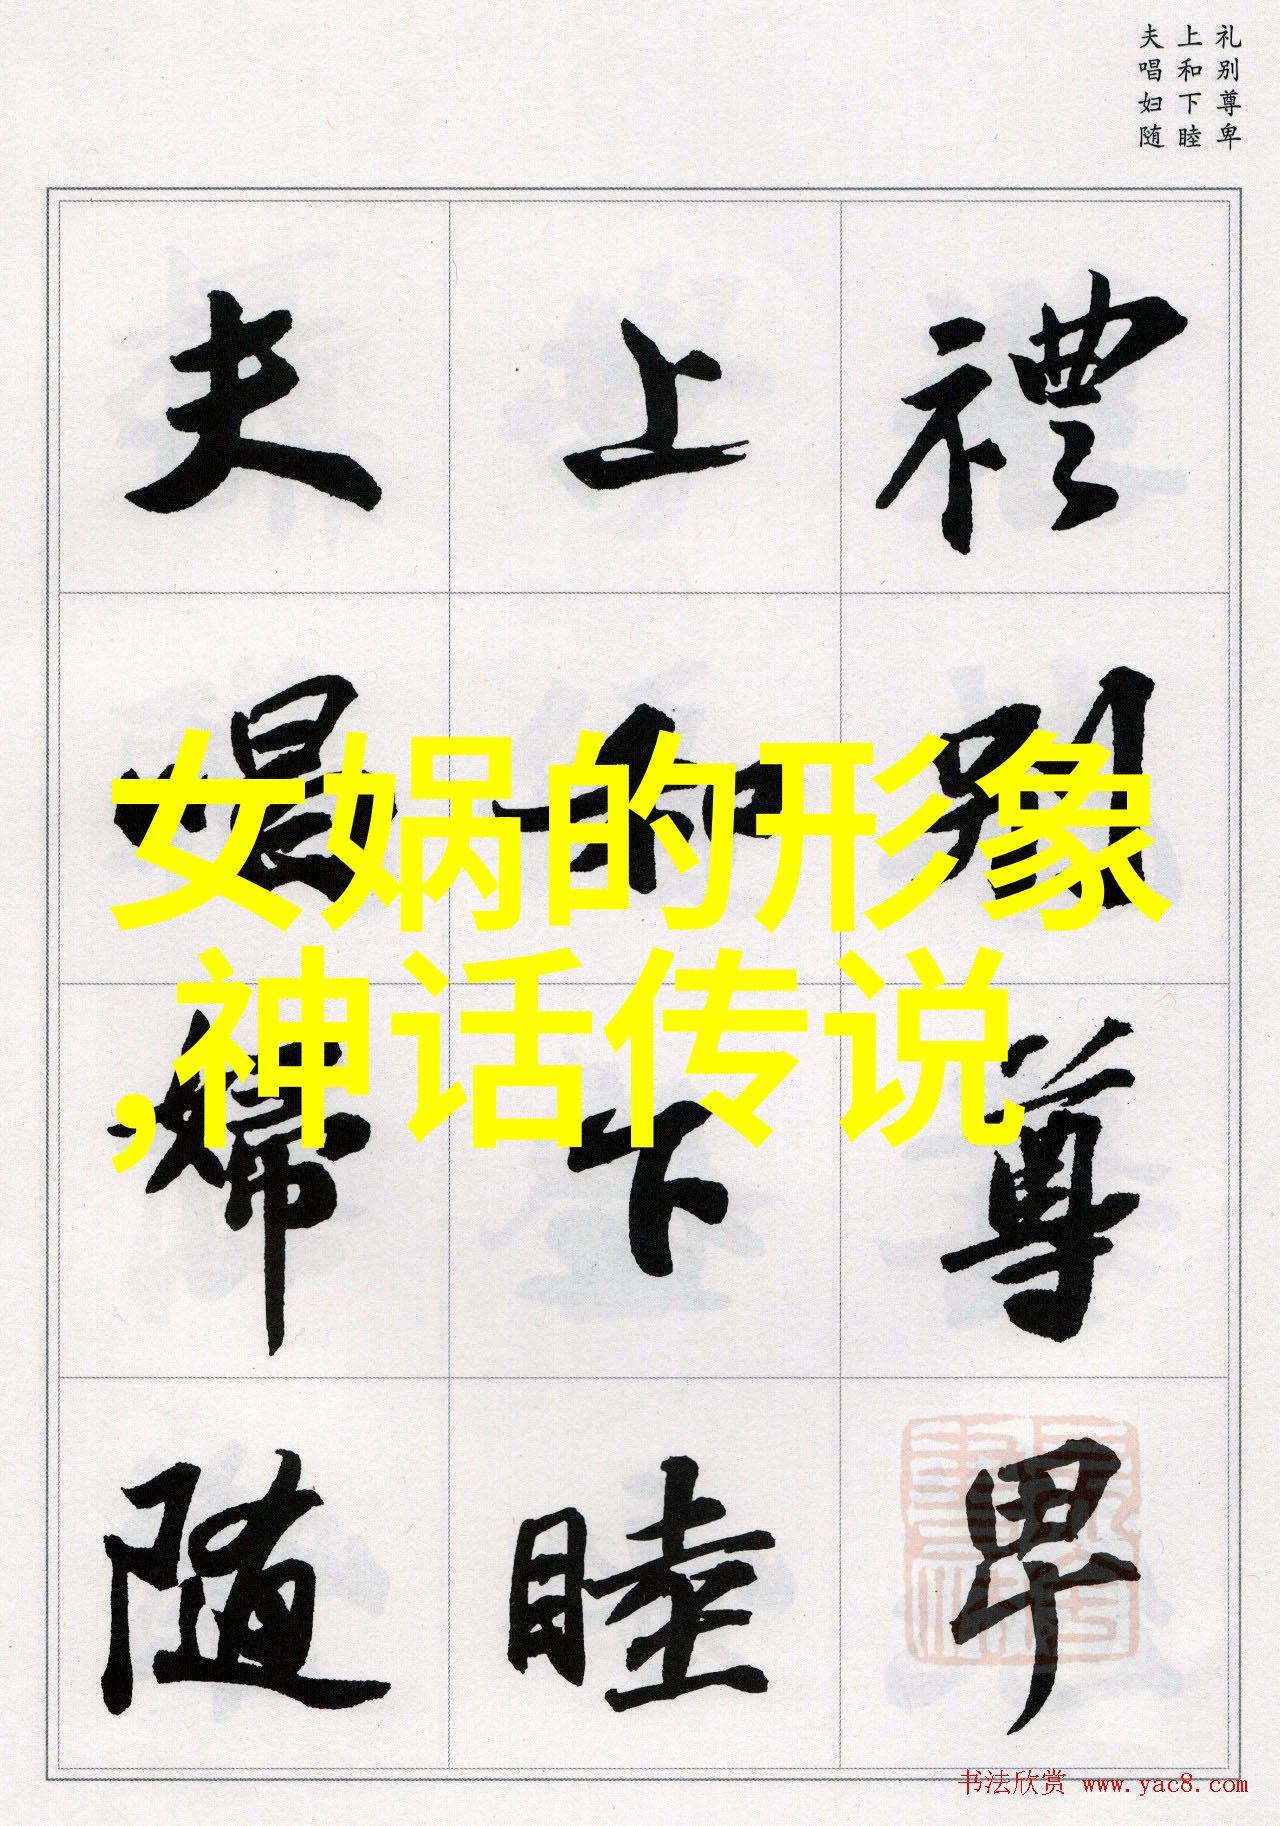 礼别尊卑
上和下睦
夫唱妇随
禮别尊卑
上和下睦
夫唱婦随
女娲的形象
,神话传说
书法欣赏 www.yac8.com